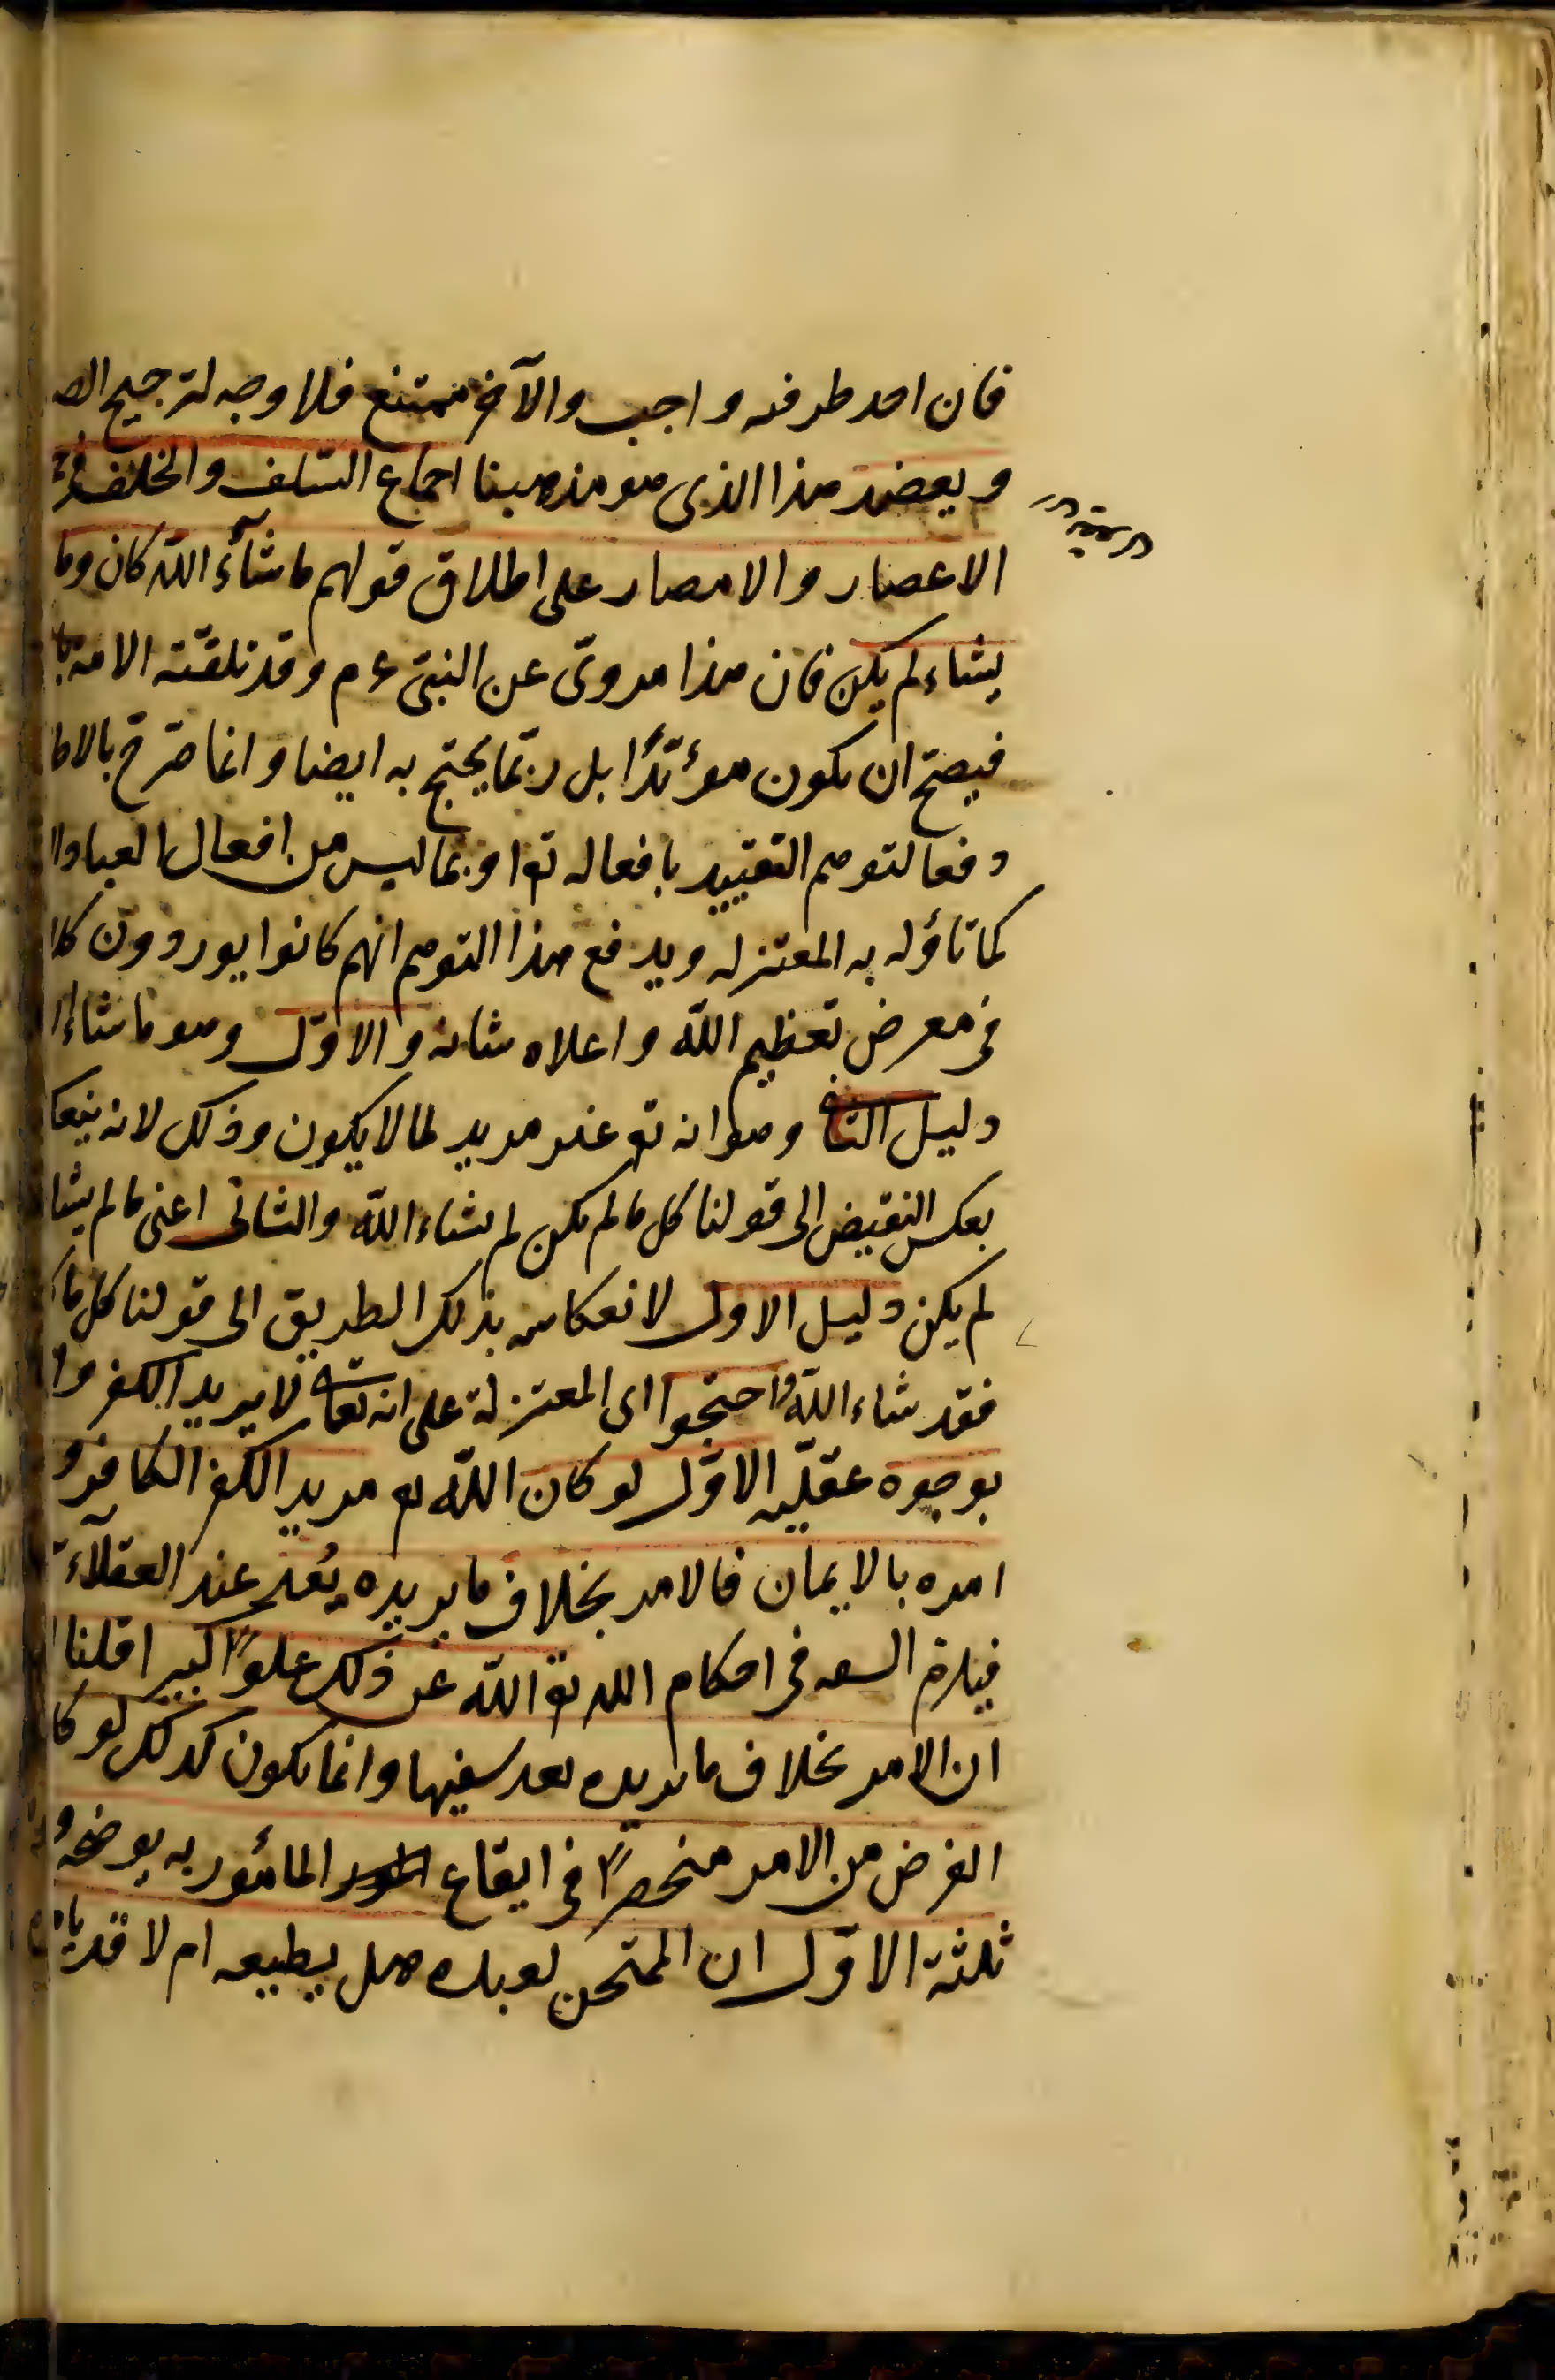 فان احد طرفيه واجب والآخر ممتنع فلا وجه لترجيح الص
ويعضد هذا الذى هو مذهبنا اجماع السّلف والخلف فى
الاعصار والامصار على اطلاق قولهم ما شآء اللّه كان وما
يشاء لم يكن فان هذا مروىّ عن النبىّ ءم وقد تلقّته الامة با
فيصحّ ان يكون مؤيّدًا بل ربّما يحتج به ايضا وانما صرّح بالاطا
دفعا لتوهم التقييد بافعاله تع او بما ليس من افعال العباد الا
كما تاؤله به المعتزله ويدفع هذا التوهم انهم كانوا يوردون كلا
فى معرض تعظيم اللّه واعلاء شانه والاوّل وهو ما شاء ا
دليل الثا وهو انه تع غير مريد لما لا يكون وذلك لانه ينعك
بعكس النقيض الى قولنا كل ما لم يكن لم يشاء اللّه والثانى اعنى ما لم يشا
لم يكن دليل الاول لانعكاسه بذلك الطريق الى قولنا كل ما
فقد شاء اللّه واحتجوا اى المعتزلة على انه تعا لا يريد الكفر وا
بوجوه عقليّه الاوّل لو كان اللّه تع مريد الكفر الكافر و
امره بالايمان فالامر بخلاف ما يريده يُعد عند العقلآء
فيلزم السفه فى احكام اللّه تع اللّه عن ذلك علوًّا كبيرا قلنا
ان الامر بخلاف ما يريده يعد سفيها وانما يكون كذلك لو كا
الغرض من الامر منحصرًا فى ايقاع المأمور به يوضحه و
ثلثة الاوّل ان الممتحن لعبده هل يطيعه ام لا قد يا